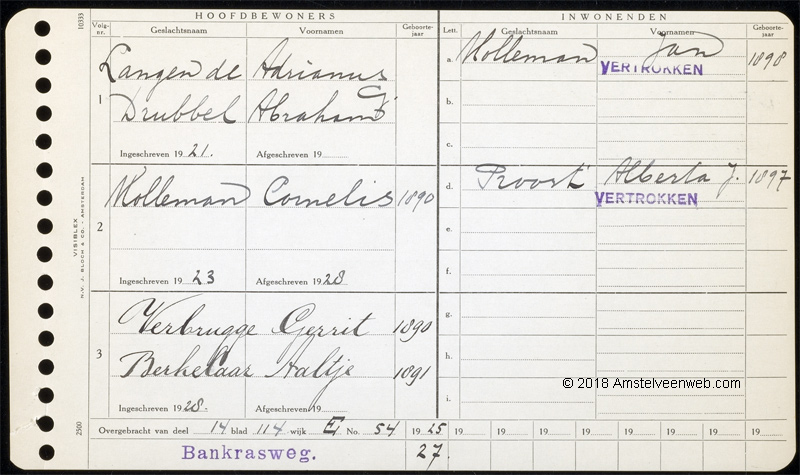 HOOFDBEWONERS
INWONENDEN
Volg-nr. Geslachtsnaam Voornamen Geboorte-jaar
Lett. Geslachtsnaam Voornamen Geboorte-jaar
1 Langen de Adrianus
Drubbel Abraham
Ingeschreven 1921. Afgeschreven 19
2 Molleman Cornelis 1890
Ingeschreven 1923 Afgeschreven 1928
3 Verbrugge Gerrit 1890
Berkelaar Aaltje 1891
Ingeschreven 1928. Afgeschreven 19
a. Molleman Jan 1898
VERTROKKEN
b.
c.
d. Proost Alberta J. 1897
VERTROKKEN
e.
f.
g.
h.
i.
© 2018 Amstelveenweb.com
Overgebracht van deel 14 blad 114 wijk E No. 54 1925 19 19 19 19 19 19 19 19
Bankrasweg. 27.
10333
VISIBLEX
N.V. J. BLOCH & CO. - AMSTERDAM
2500